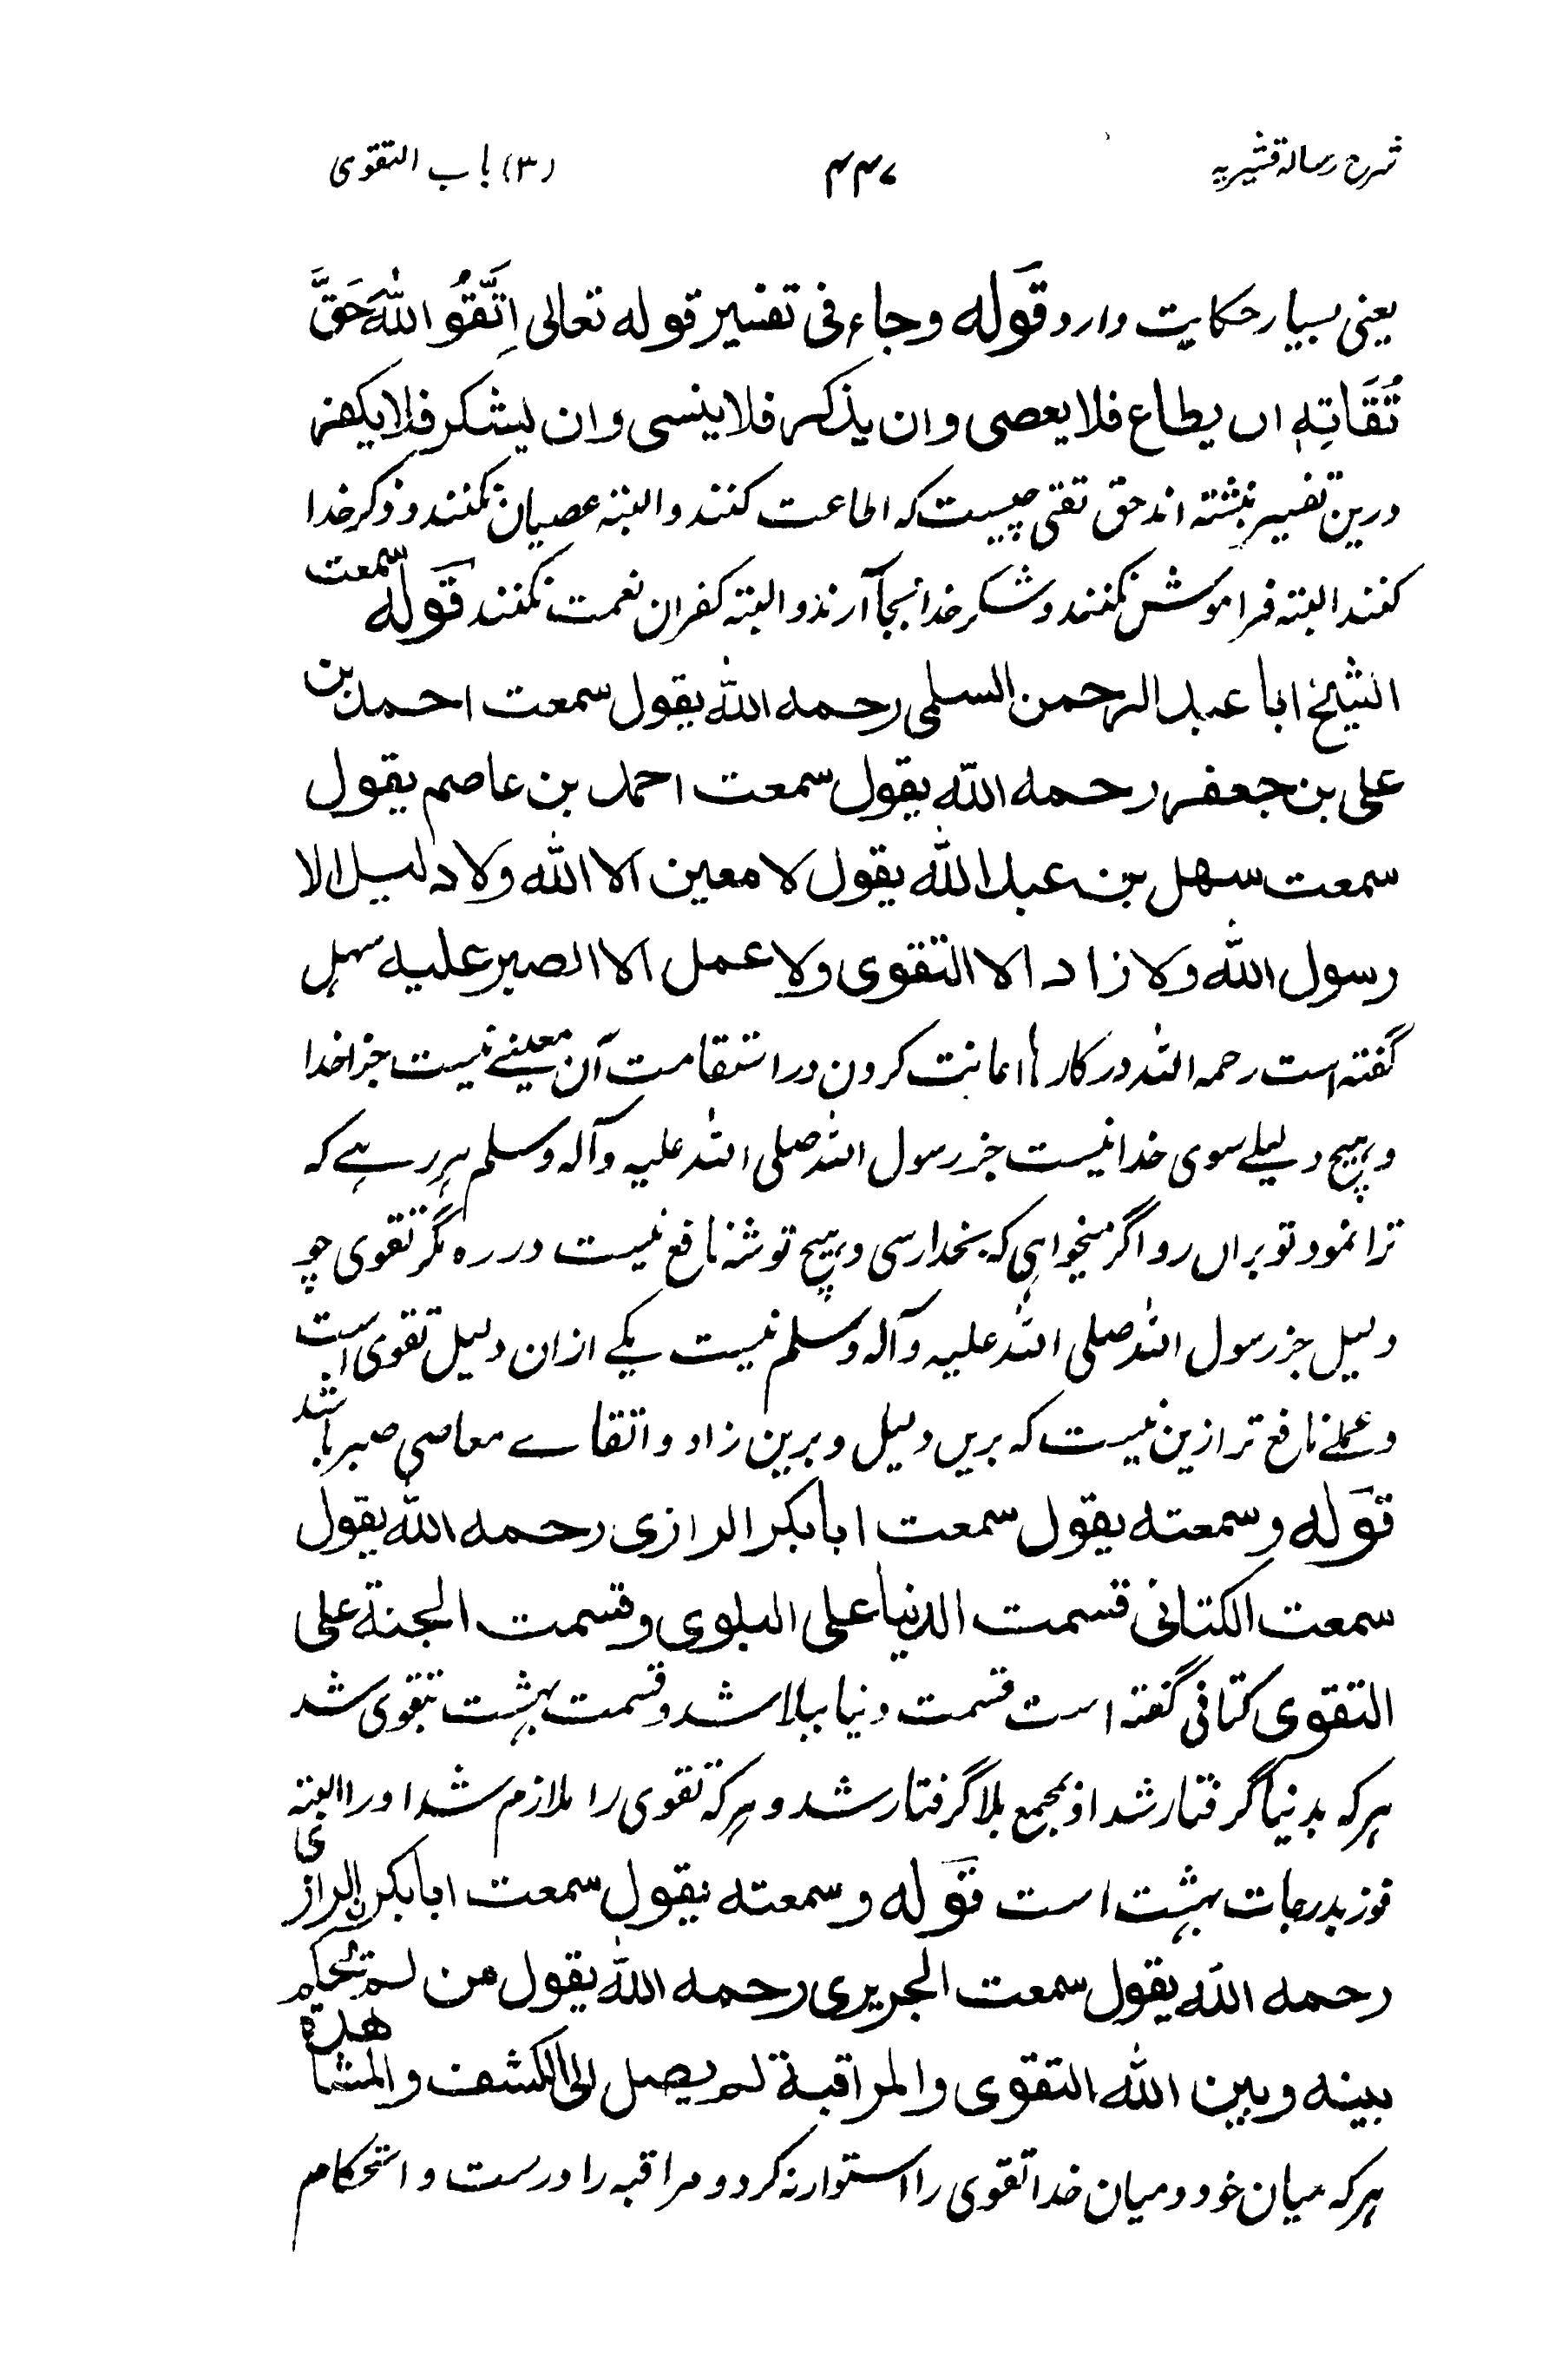 شرح رسالہ قشیریہ ۴۴۷ (۳) باب التقوی
یعنی بسیار حکایت دارد قَوله وجاء فی تفسیر قوله تعالی اِتَّقُو اللّٰهَ حَقَّ
تُقَاتِهٖ ان یطاع فلا یعصی وان یذکر فلا ینسی وان یشکر فلا یکفر
درین تفسیر نبشته اند حق تقی چیست که اطاعت کنند و البته عصیان نکنند و ذکر خدا
کنند البته فراموش نکنند و شکر خدا بجا آرند و البته کفران نعمت نکنند قَوله سمعت
الشیخ ابا عبد الرحمن السلمی رحمه اللّٰه یقول سمعت احمد بن
علی بن جعفر رحمه اللّٰه یقول سمعت احمد بن عاصم یقول
سمعت سهل بن عبد اللّٰه یقول لا معین الا اللّٰه ولا دلیل الا
رسول اللّٰه ولا زاد الا التقوی ولا عمل الا الصبر علیه سهل
گفته است رحمه اللّٰه در کارها اعانت کردن در استقامت آن معینے نیست جز خدا
و هیچ دلیلے سوی خدا نیست جز رسول اللّٰه صلی اللّٰه علیه وآله وسلم هر رہے که
ترا نمود تو بران رو اگر میخواهی که بخدا رسی و هیچ توشه نافع نیست در ره مگر تقوی چو
دلیل جز رسول اللّٰه صلی اللّٰه علیه وآله وسلم نیست یکے ازان دلیل تقوی است
و عملے نافع تر ازین نیست که بریں دلیل و برین زاد و اتقاے معاصی صبر باشد
قَوله وسمعته یقول سمعت ابا بکر الرازی رحمه اللّٰه یقول
سمعت الکتانی قسمت الدنیا علی البلوی وقسمت الجنة علی
التقوی کتانی گفته است قسمت دنیا ببلا شد و قسمت بهشت بتقوی شد
هر که بدنیا گرفتار شد او بمجمع بلا گرفتار شد و هر که تقوی را ملازم شد او را البته
فوز بدرجات بهشت است قَوله وسمعته یقول سمعت ابا بکرن الرازی
رحمه اللّٰه یقول سمعت الجریری رحمه اللّٰه یقول من لم یحکم
بینه وبین اللّٰه التقوی والمراقبة لم یصل الی الکشف والمشاهدة
هر که میان خود و میان خدا تقوی را استوار نه کرد و مراقبه را درست و استحکام